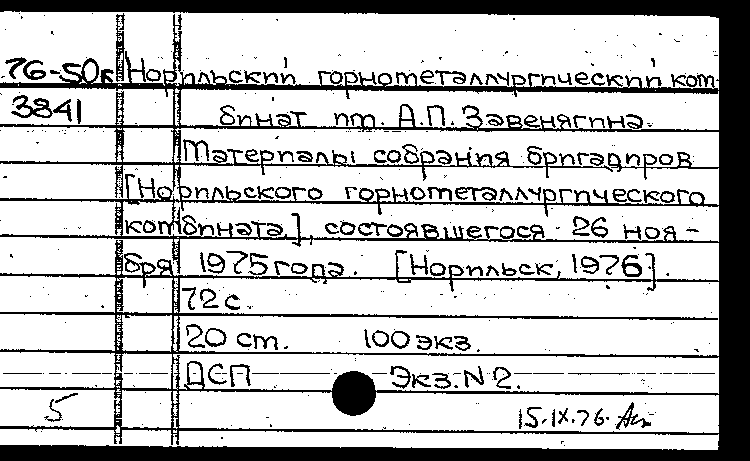 76-50к Норильский горнометаллургический ком-
3841 бинат им. А.П. Завенягина.
Материалы собрания бригадиров
[Норильского горнометаллургического
комбината], состоявшегося 26 ноя-
бря 1975 года. [Норильск, 1976].
72 с.
20 ст. 100 экз.
ДСП Экз. N 2.
5 15.IX.76.